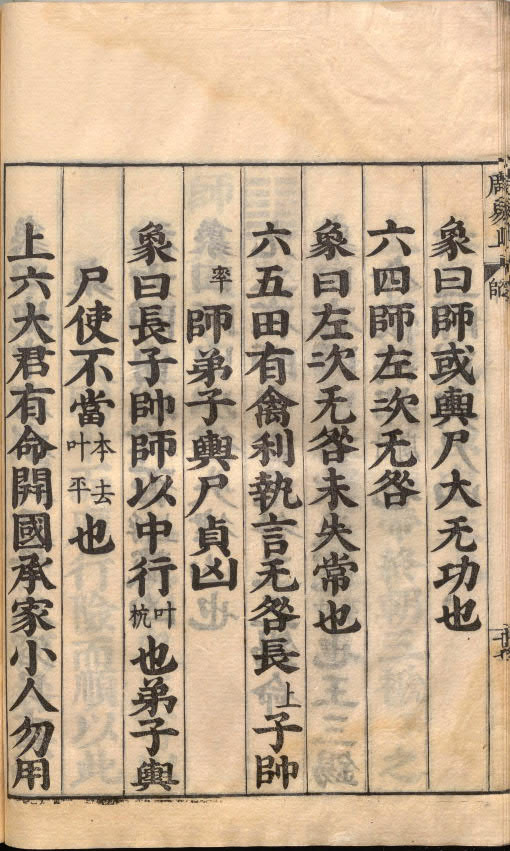 象曰師或輿尸大无功也
六四師左次无咎
象曰左次无咎未失常也
六五田有禽利執言无咎長上子帥
率師弟子輿尸貞凶
象曰長子帥師以中行叶杭也弟子輿
尸使不當本去叶平也
上六大君有命開國承家小人勿用